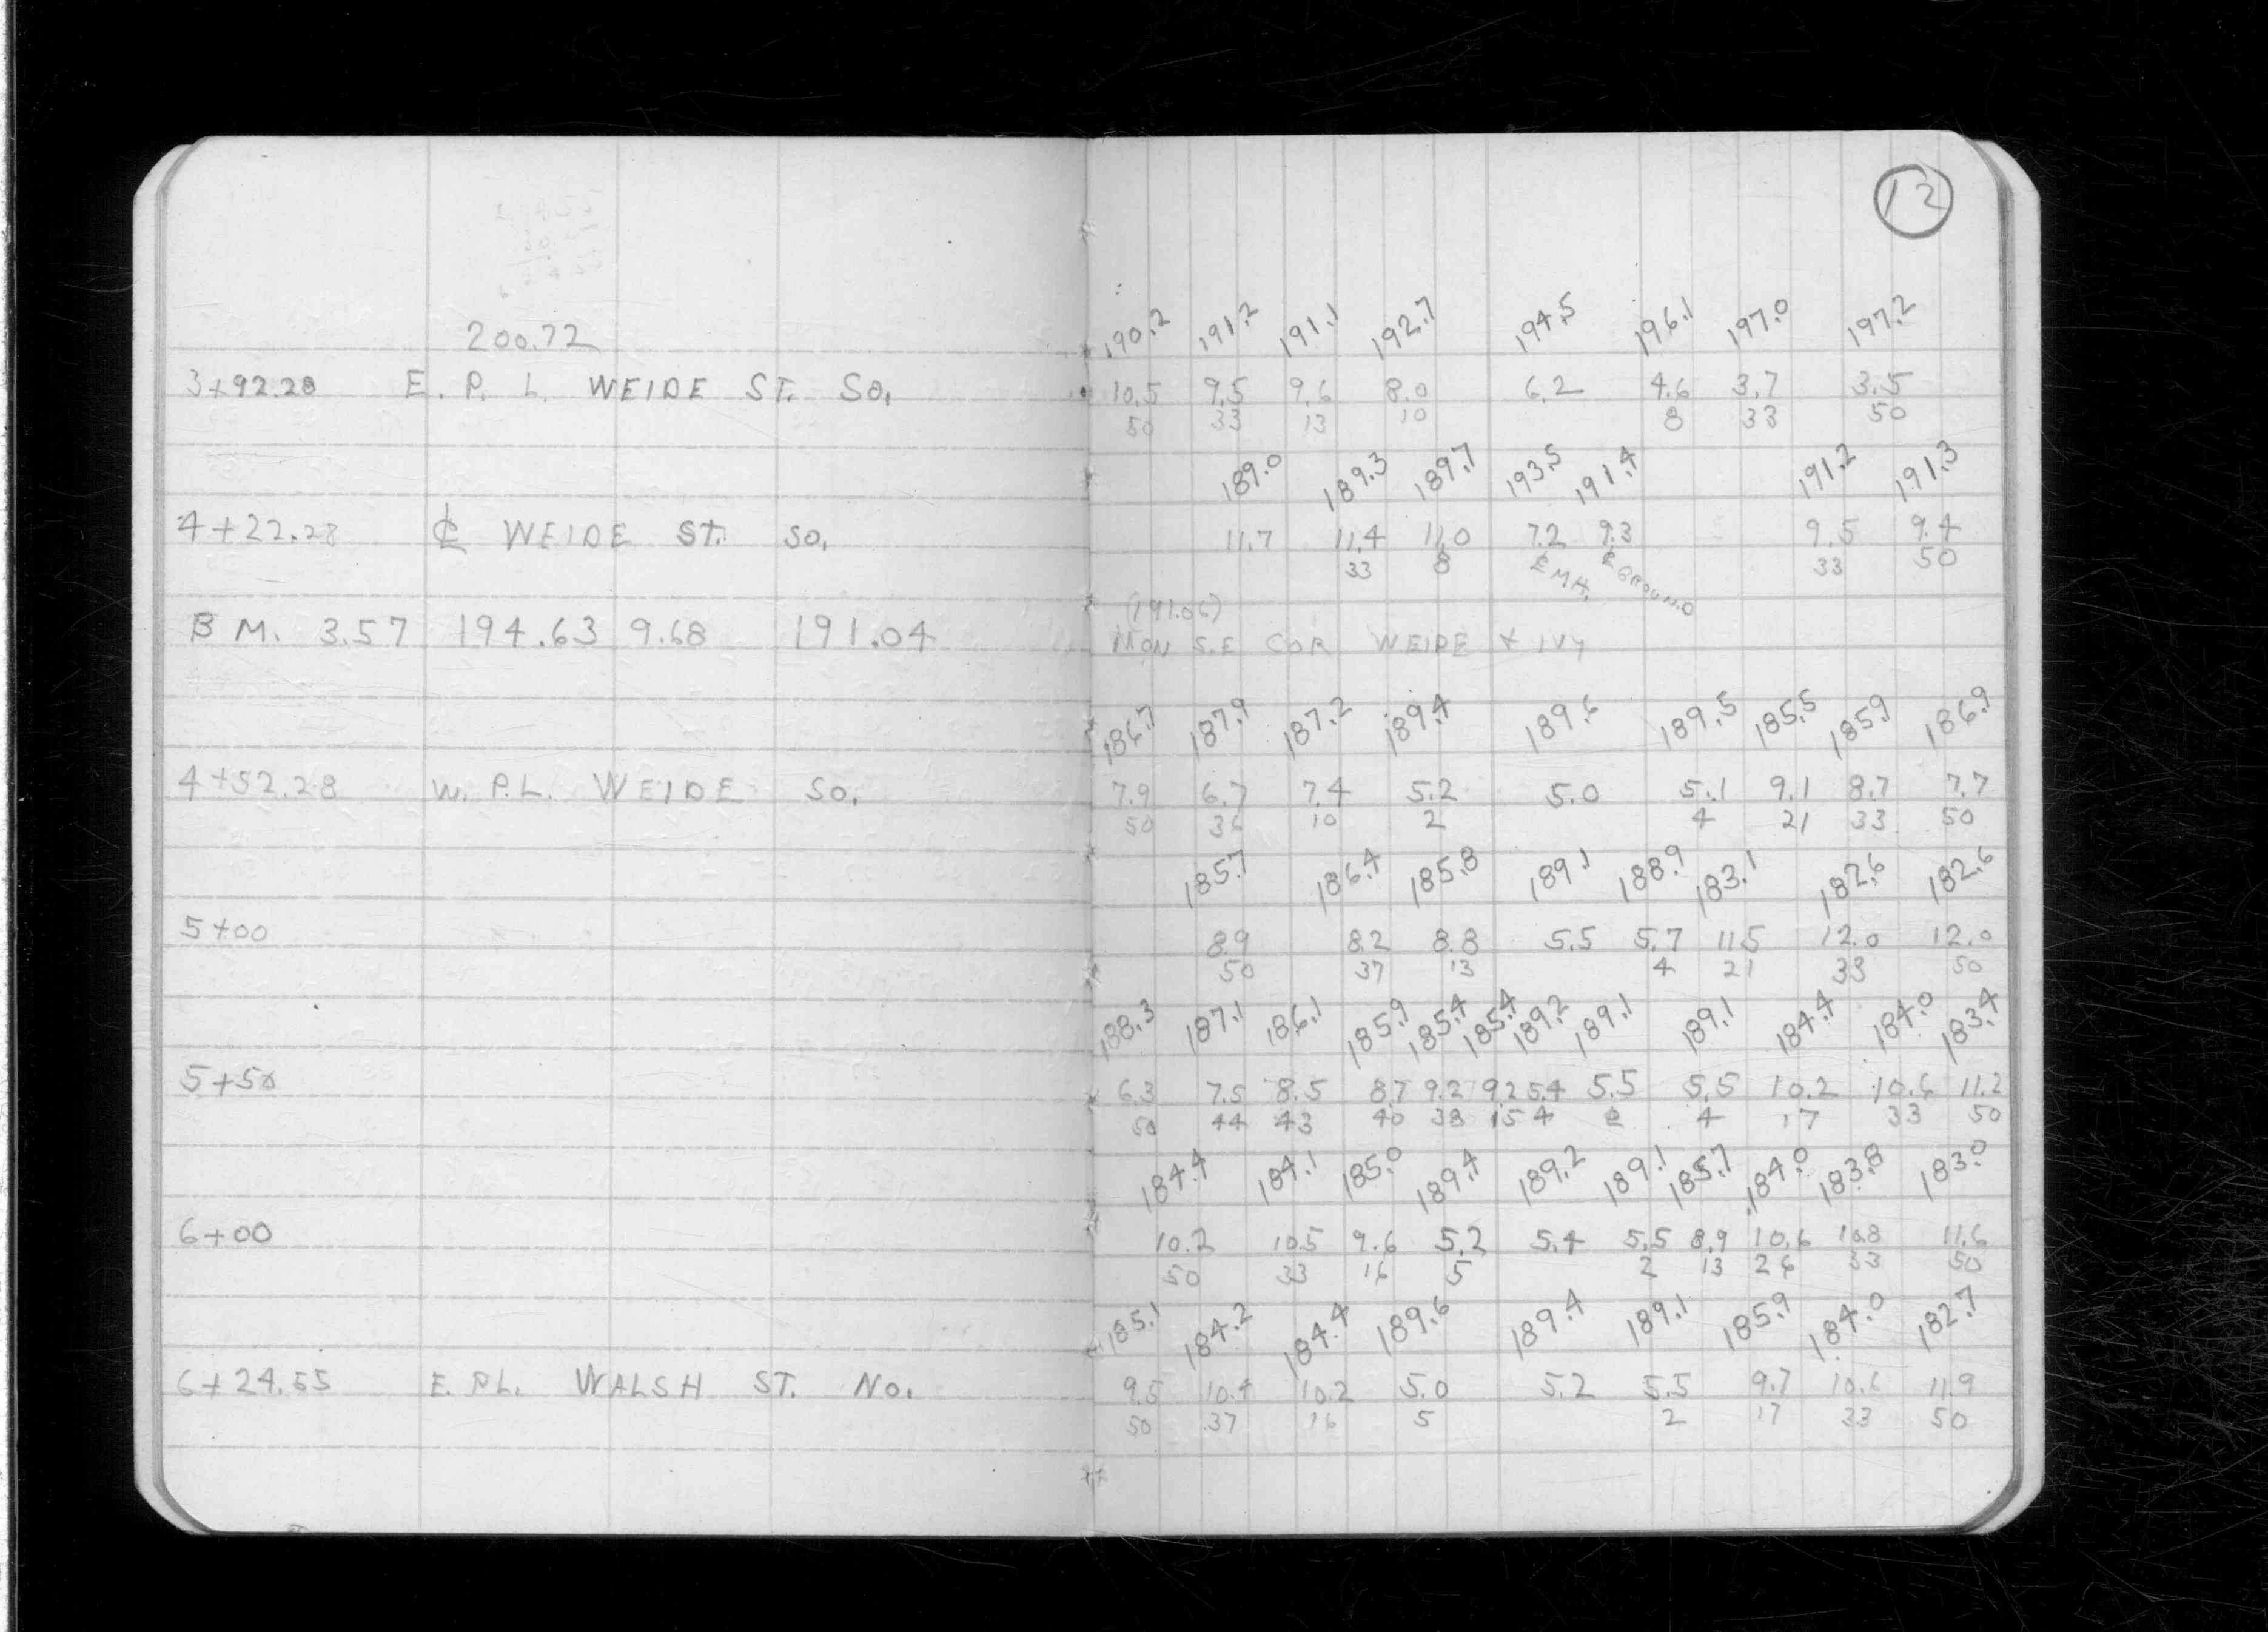 12
200.72
190.2 191.2 191.1 192.7 194.5 196.1 197.0 197.2
3+92.28 E. P. L. WEIDE ST. SO. 10.5 9.5 9.6 8.0 6.2 4.6 3.7 3.5
50 33 13 10 8 33 50
189.0 189.3 189.7 193.5 191.4 191.2 191.3
4+22.28 ℄ WEIDE ST. SO. 11.7 11.4 11.0 7.2 9.3 9.5 9.4
33 8 ℄ M.H. ℄ GROUND 33 50
(191.06)
B M. 3.57 194.63 9.68 191.04 MON S.E COR WEIDE & IVY
186.7 187.9 187.2 189.4 189.6 189.5 185.5 185.9 186.9
4+52.28 W. P.L. WEIDE SO. 7.9 6.7 7.4 5.2 5.0 5.1 9.1 8.7 7.7
50 36 10 2 4 21 33 50
185.7 186.4 185.8 189.1 188.9 183.1 182.6 182.6
5+00 8.9 8.2 8.8 5.5 5.7 11.5 12.0 12.0
50 37 13 4 21 33 50
188.3 187.1 186.1 185.9 185.4 185.4 189.2 189.1 189.1 184.4 184.0 183.4
5+50 6.3 7.5 8.5 8.7 9.2 9.2 5.4 5.5 5.5 10.2 10.6 11.2
50 44 43 40 38 15 4 ℄ 4 17 33 50
184.4 184.1 185.0 189.4 189.2 189.1 185.7 184.0 183.8 183.0
6+00 10.2 10.5 9.6 5.2 5.4 5.5 8.9 10.6 10.8 11.6
50 33 16 5 2 13 26 33 50
185.1 184.2 184.4 189.6 189.4 189.1 185.9 184.0 182.7
6+24.55 E. P.L. WALSH ST. NO. 9.5 10.4 10.2 5.0 5.2 5.5 9.7 10.6 11.9
50 37 16 5 2 17 33 50